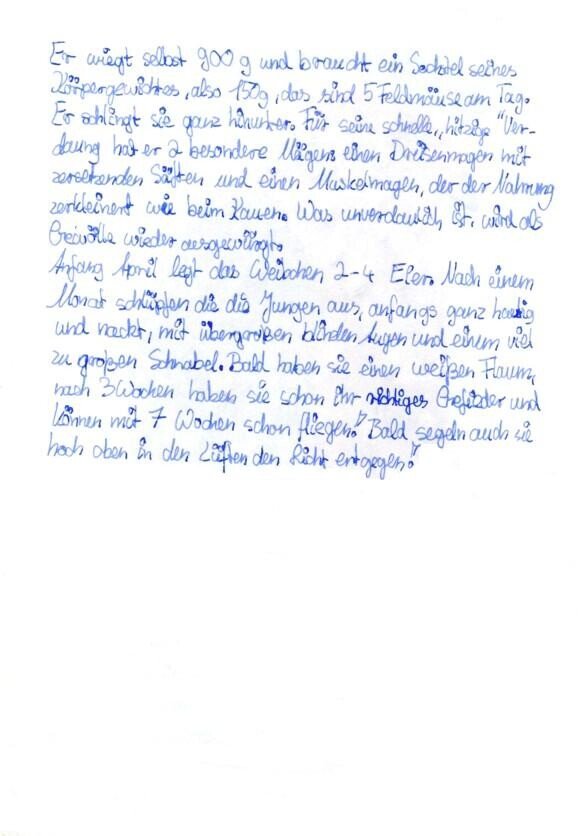 Er wiegt selbst 900 g und braucht ein Sechstel seines
Körpergewichtes, also 150g, das sind 5 Feldmäuse am Tag.
Er schlingt sie ganz hinunter. Für seine schnelle, „hitzige "Ver-
dauung hat er 2 besondere Mägen: einen Drüsenmagen mit
zersetzenden Säften und einen Muskelmagen, der der Nahrung
zerkleinert wie beim Kauen. Was unverdaulich ist, wird als
wieder ausgewürgt.
Anfang April legt das Weibchen 2-4 Eier. Nach einem
Monat schlüpfen die die Jungen aus, anfangs ganz
und nackt, mit übergroßen blinden Augen und einem viel
zu großen Schnabel. Bald haben sie einen weißen Flaum,
nach 3 Wochen haben sie schon ihr richtiges Gefieder und
können mit 7 Wochen schon fliegen! Bald segeln auch sie
hoch oben in den Lüften den Licht entgegen!